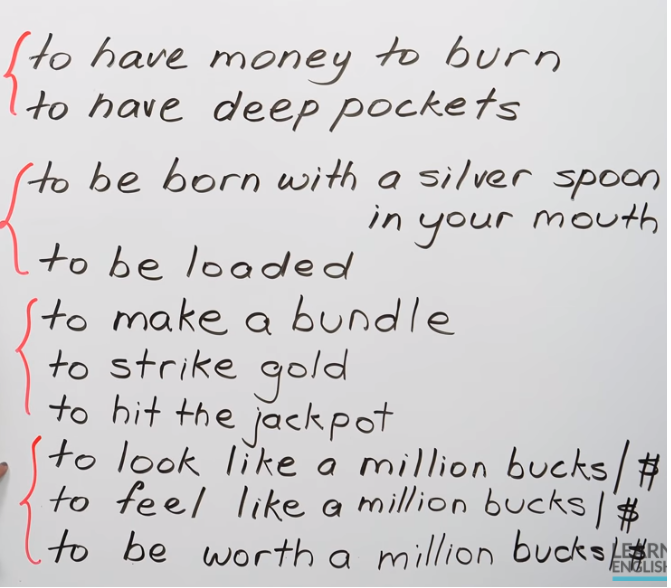 to have money to burn
to have deep pockets
to be born with a silver spoon
in your mouth
to be loaded
to make a bundle
to strike gold
to hit the jackpot
to look like a million bucks/$
to feel like a million bucks/$
to be worth a million bucks/$
LEARN
ENGLISH